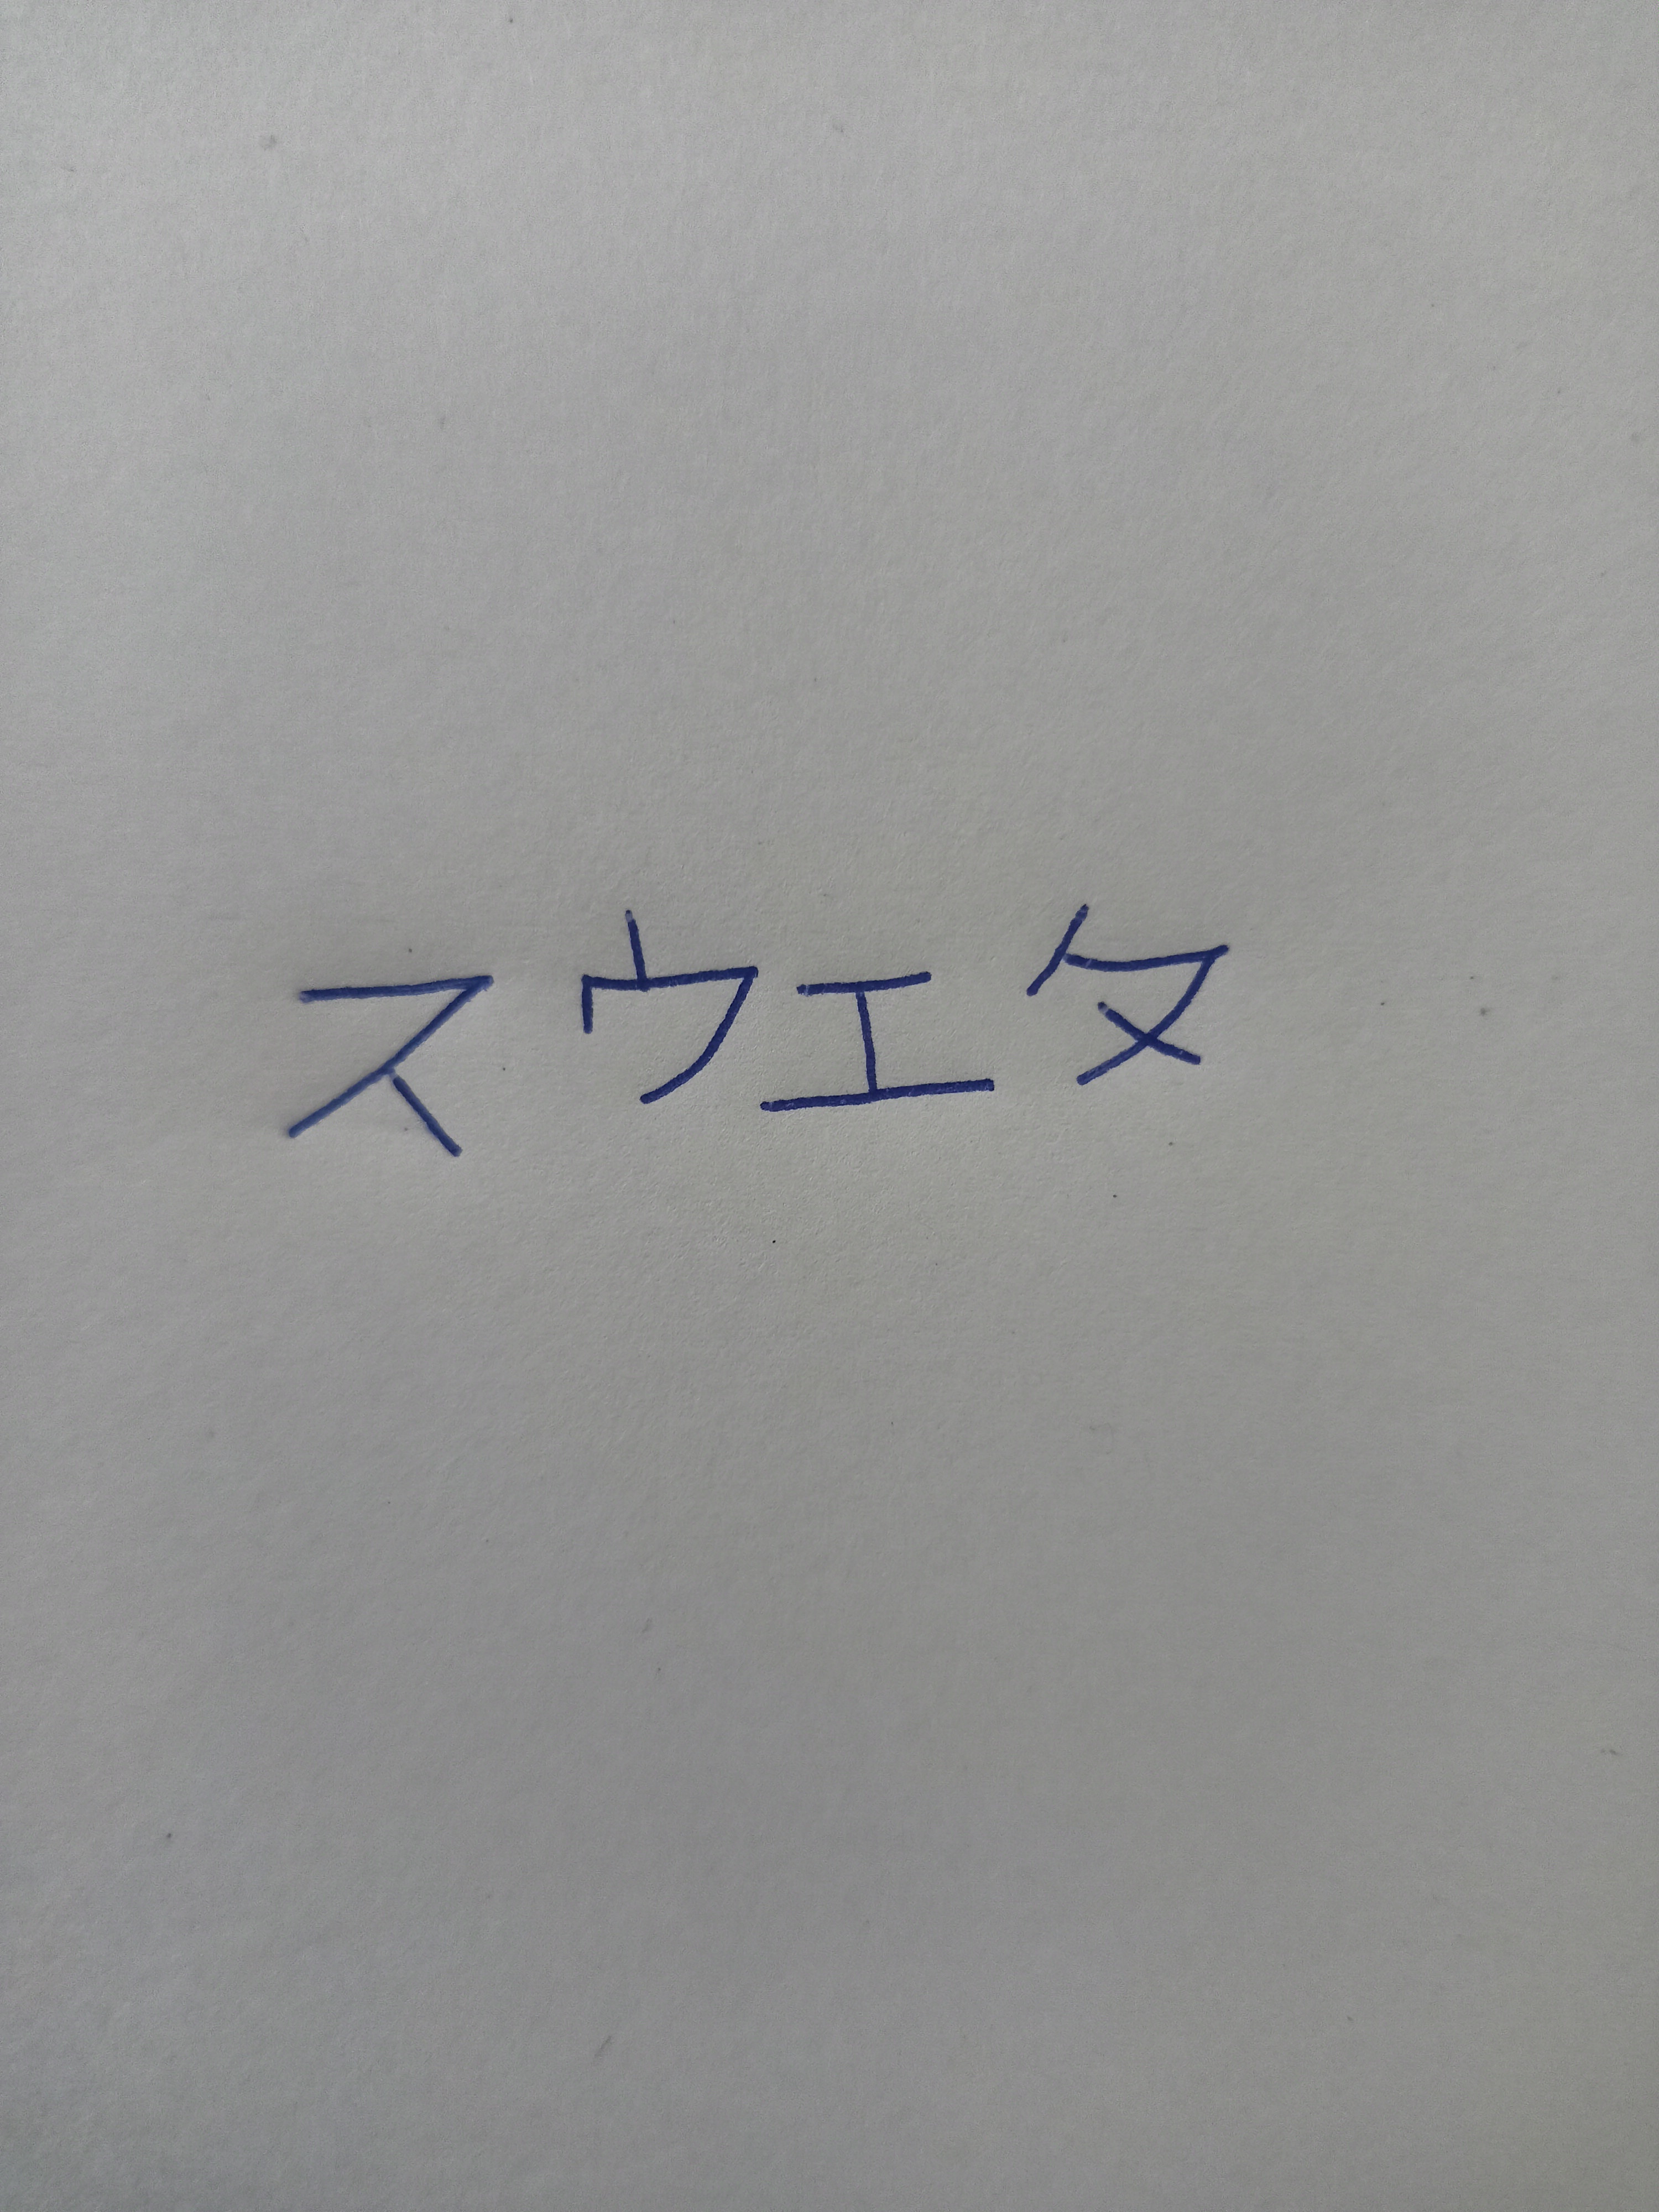 スウエタ